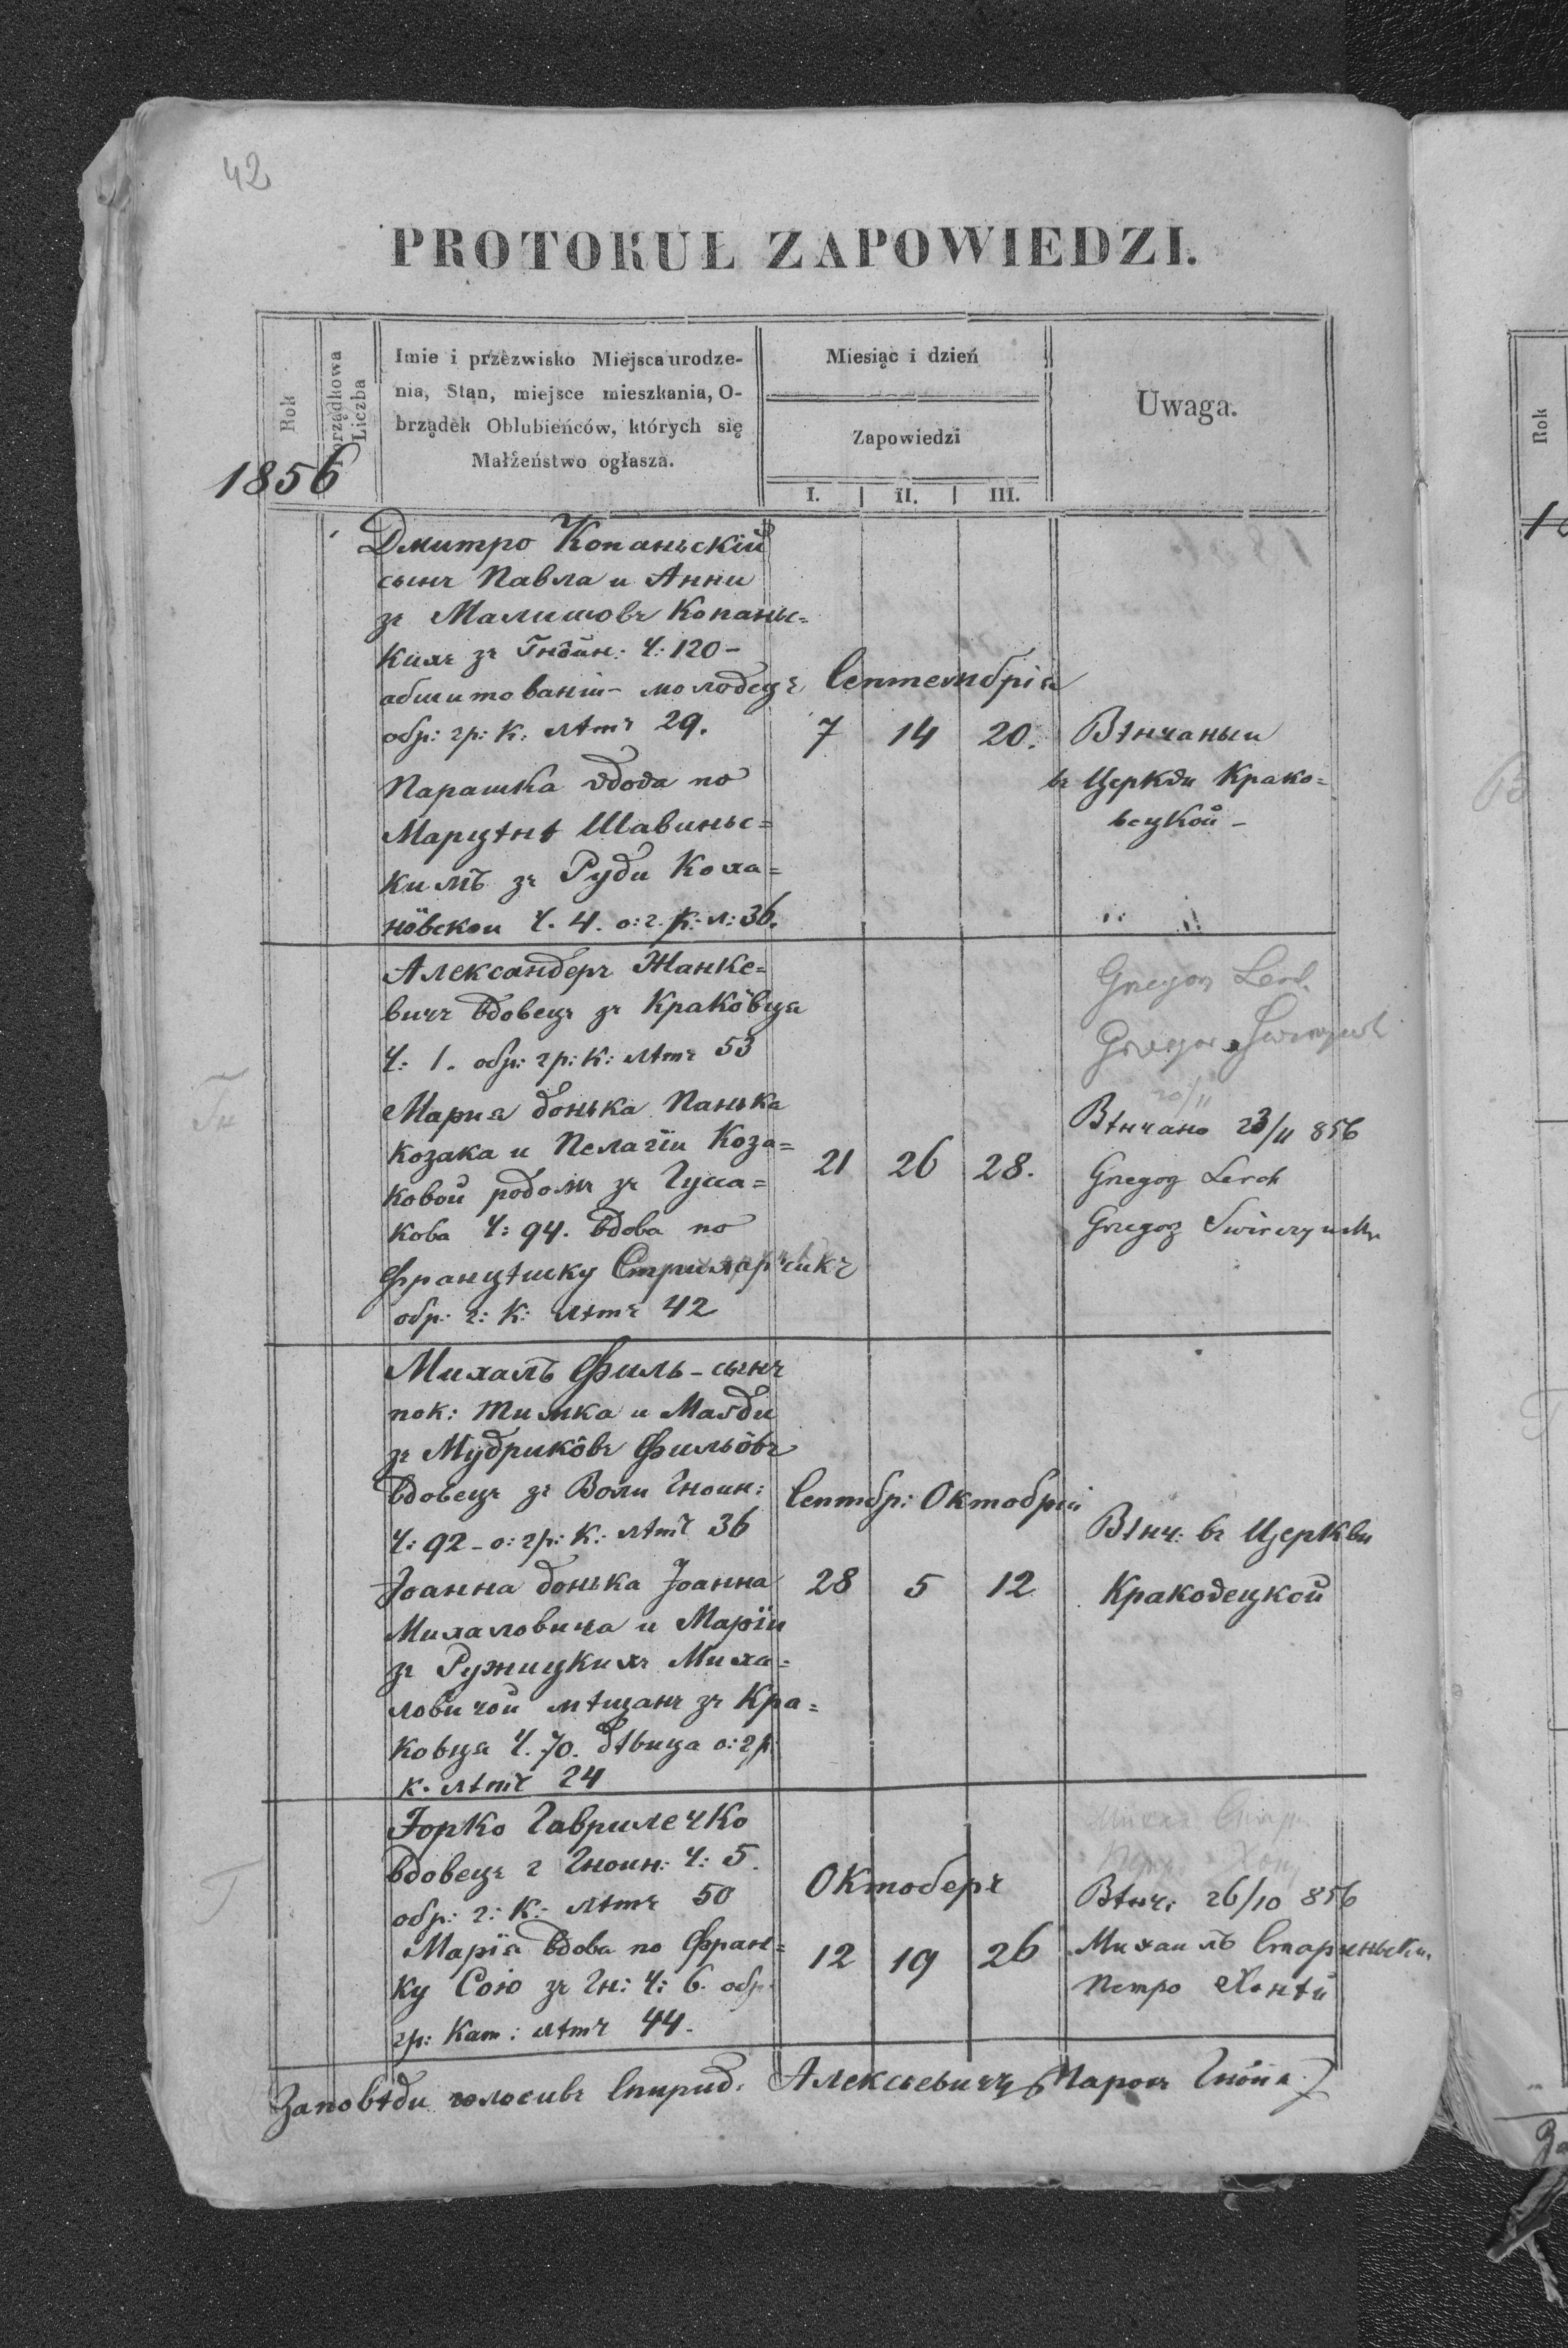 42
PROTOKUŁ ZAPOWIEDZI.
Rok
Porządkowa Liczba
Imie i przezwisko Miejsca urodze-
nia, Stan, miejsce mieszkania, O-
brządek Oblubieńców, których się
Małżeństwo ogłasza.
Miesiąc i dzień
Zapowiedzi
I. II. III.
Uwaga.
1856
Дмитро Копаньскій
сынъ Павла и Анни
зъ Малишовъ Копаньс=
кихъ зъ Гнôйн: Ч: 120 -
абшитованій - молодецъ
обр: гр: К: лѣтъ 29.
Парашка вдова по
Марцѣнѣ Шавиньс=
кимъ зъ Руди Коха=
нôвскои Ч. 4. о: г. К: л: 36.
Септемврія
7 14 20.
Вѣнчаныи
въ Церкви Крако=
вецкой -
Александеръ Жанке=
вичъ вдовецъ зъ Кракôвця
Ч: 1. обр: гр: К: лѣтъ 53
Мария донька Панька
Козака и Пелагіи Коза=
ковой родомъ зъ Гуса=
кова Ч: 94. вдова по
Францѣшку
обр: г: К: лѣтъ 42
21 26 28.
Grzegorz Lerch
Grzegorz
20/11
Вѣнчано 23/11 856
Grzegorz Lerch
Grzegorz Swirczynski
Михалъ Филь - сынъ
пок: Тимка и Магди
зъ Мудрикôвъ Фильôвъ
вдовецъ зъ Воли Гноин:
Ч: 92 - о: гр: К: лѣтъ 36
Іоанна донька Іоанна
Михаловича и Маріи
зъ Ружицкихъ Миха=
ловичой мѣщанъ зъ Кра=
ковця Ч. 70. дѣвица о: гр:
к. лѣтъ 24
Септбр: Октобрій
28 5 12
Вѣнч: въ Церкви
Краковецкой
Юрко Гаврилечко
вдовецъ г Гноин: Ч: 5.
обр: г: К: лѣтъ 50
Марія вдова по Фран=
ку Сою зъ Гн: Ч: 6. обр:
гр: Кат: лѣтъ 44.
Октоберъ
12 19 26
Вѣнч: 26/10 856
Михаилъ Стариньски
Петро Хонѣй
Заповѣди голосивъ Спирид: Алексѣевичъ Парох Гнôйн.